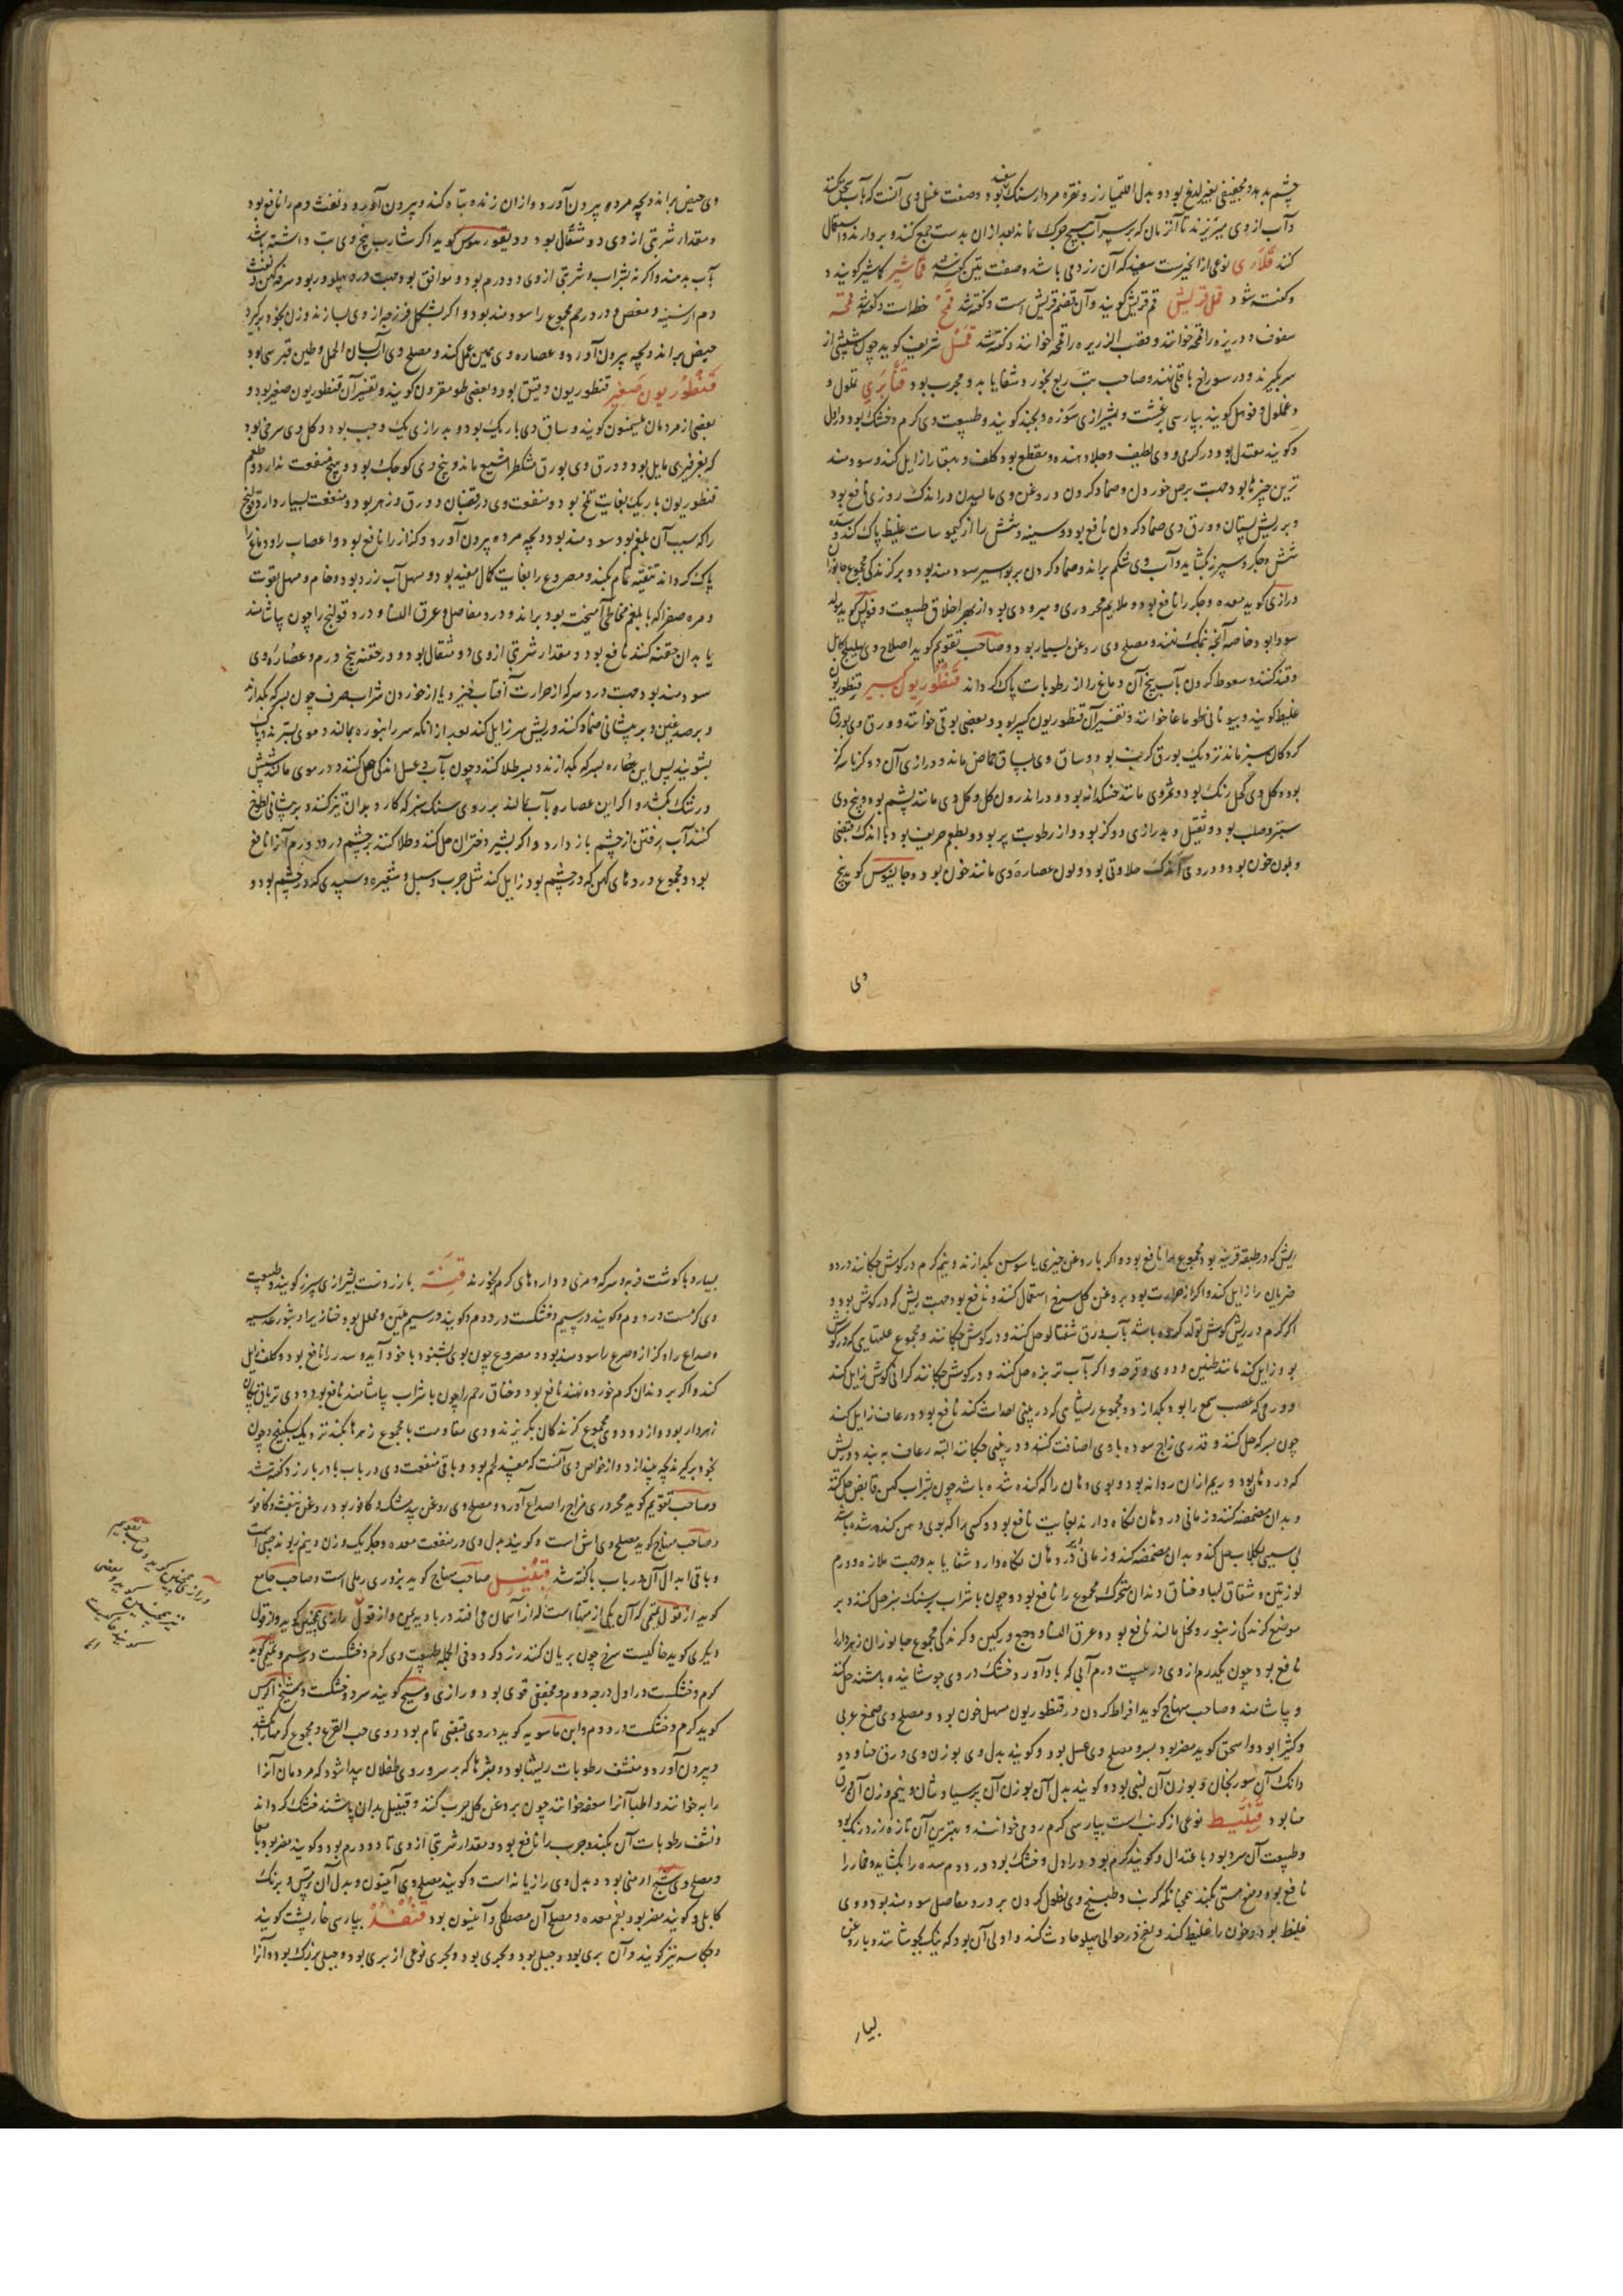 چشم بدید و مجففی بغیر لذع بود و بدل اقلیمیا زر و نقره مردار سنک سفید بود و صفت غسل وی آنست که بآب سحق کنند
و آب از وی میریزند تا آنزمان که بر سر آب هیچ چرک نماند بعد ازان بدست جمع کنند و بردارند و استعمال
کنند قلاری نوعی از انجیرست سفید که آن زرد می باشد و صفت تین گفته شد قماشیر کاشیر گویند و
و گفته شود قمل قریش قم قریش گویند و آن قضم قریش است و گفته شد قمح حنطه است و گفته شد قمحه
سفوف و ذریره را قمحه خوانند و قصب الذریره را قمحه خوانند و گفته شد قمل شریف گوید چون شپشی از
سر بگیرند و در سوراخ باقلی نهند و صاحب تب ربع بخورد شفا یابد و مجرب بود قنابری تملول و
و غملول و قونیل گویند بپارسی برغشت و بشیرازی سوزه و بجند گویند و طبیعت وی گرم و خشک بود در اول
و گویند معتدل بود در گرمی و وی لطیف و جلا دهنده و مقطع بود کلف و بهق را زایل کند و سودمند
ترین چیزها بود جهت برص خوردن و ضماد کردن و روغن وی مالیدن در اندک روزی نافع بود
و بر ریش پستان و ورق وی ضماد کردن نافع بود و سینه و شش را از کیموسات غلیظ پاک کند و سده
شش و جگر و سپرز بگشاید و آب وی شکم براند و ضماد کردن بر بواسیر سودمند بود و بر گزندگی مجموع جانوران
و رازی گوید معده و جگر را نافع بود و ملایم محروری و مبرودی بود از بهر اخلاق طبیعت و فولس گوید مولد
سودا بود خاصه آنچه بنمک نهند و مصلح وی روغن بسیار بود و صاحب تقویم گوید اصلاح وی بهلیله کابلی
و قند کنند و سعوط کردن بآب بیخ آن دماغ را از رطوبات پاک گرداند قنطوریون کبیر قنطوریون
غلیظ گویند و بیونانی طوماغا خوانند و تفسیر آن قنطوریون کبیر بود و بعضی بوقی خوانند و ورق وی بورق
گردکان سبز ماند نزدیک بورق کرنب بود و ساق وی بساق حماض ماند و درازی آن دو گز یا سه گز
بود و گل وی کحل رنگ بود و ثمر وی مانند خسکدانه بود و در اندرون گل و گل وی مانند پشم بود و بیخ وی
ستبر و صلب بود و ثقیل و بدرازی دو گز بود و از رطوبت پر بود و بطعم حریف بود با اندک قبضی
و بلون خون بود و در وی اندک حلاوتی بود و لون عصاره وی مانند خون بود و جالینوس گوید بیخ
وی
وی حیض براند و بچه مرده بیرون آورد و ازان زنده تباه کند و بیرون آورد و نفث دم را نافع بود
و مقدار شربتی از وی دو مثقال بود و دیسقوریدوس گوید اگر شارب بیخ وی تب داشته باشد
بآب بدهند و اگر نه بشراب و شربتی از وی دو درم بود و موافق بود جهت درد پهلو و ربو و سرفه کهن و نفث
دم از سینه و مغص و درد رحم مجموع را سودمند بود و اگر بشکل فرزجه از وی بسازند و زن بخود برگیرد
حیض براند و بچه بیرون آورد و عصاره وی همین عمل کند و مصلح وی آب لسان الحمل و طین قبرسی بود
قنطوریون صغیر قنطوریون دقیق بود و بعضی طومقرون گویند و تفسیر آن قنطوریون صغیر بود و
بعضی از مردمان لیمنیون گویند و ساق وی باریک بود و بدرازی یک وجب بود و گل وی سرخی بود
که بفرفیری مایل بود و ورق وی بورق مشکطرامشیع ماند و بیخ وی کوچک بود و بیخ منفعت ندارد و طعم
قنطوریون باریک بغایت تلخ بود و منفعت وی در قضبان و ورق و زهر بود و منفعت بسیار دارد قولنج
را که سبب آن بلغم بود سودمند بود و بچه مرده بیرون آورد و کزاز را نافع بود و اعصاب را و دماغ را
پاک گرداند تنقیه تمام بکند و مصروع را بغایت کمال مفید بود و مسهل آب زرد بود و خام و مسهل بقوت
و مره صفرا که با بلغم مخاطی آمیخته بود براند و درد مفاصل و عرق النسا و درد قولنج را چون بیاشامند
یا بدان حقنه کنند نافع بود و مقدار شربتی از وی دو مثقال بود و در حقنه پنج درم و عصاره وی
سودمند بود جهت درد سر که از حرارت آفتاب خیزد یا از خوردن شراب صرف چون بسرکه بگدازند
و بر صدغین و بر پیشانی ضماد کنند و ریش سر زایل کند بعد از آنکه سر را بنوره بمالند و موی بسترند و پاک
بشویند پس این عصاره بسرکه بگدازند و بر سر طلا کنند و چون بآب و عسل اندکی حل کنند و در موی مالند شپش
و رشک بکشد و اگر این عصاره بآب بمالند بر روی سنک سبز که کارد بدان تیز کنند و بر پیشانی لطخ
کنند آب رفتن از چشم باز دارد و اگر بشیر دختران حل کنند و طلا کنند بر چشم درد و ورم آنرا نافع
بود و مجموع دردهای کهن که در چشم بود زایل کند مثل جرب و سبل و شعیره و سپیدی که در چشم بود و
ریش که در طبقه قرنیه بود مجموع را نافع بود و اگر با روغن خیری یا سوسن بگدازند و نیم گرم در گوش چکانند درد و
ضربان را زایل کند و اگر از حرارت بود بروغن گل سرخ استعمال کنند و نافع بود جهت ریش که در گوش بود و
اگر کرم در ریش گوش تولد کرده باشد بآب ورق شفتالو حل کنند و در گوش چکانند و مجموع علتهایی که در گوش
بود زایل کند مانند طنین و دوی و قرحه و اگر بآب تربزه حل کنند و در گوش چکانند گرانی گوش زایل کند
و ورمی که عصب سمع را بود بگدازد و مجموع ریشهایی که در بینی احداث کند نافع بود و رعاف زایل کند
چون بسرکه حل کنند و قدری زاج سوده با وی اضافت کنند و در بینی چکانند البته رعاف به بندد و ریش
که در دهان بود و ریم ازان روانه بود و بوی دهان را که گنده شده باشد چون بشراب کهن قابض حل کنند
و بدان مضمضه کنند و زمانی در دهان نگاه دارند بغایت نافع بود و کسی را که بوی دهن گنده شده باشد
بی سببی بگلاب حل کند و بدان مضمضه کند و زمانی در دهان نگاه دارد شفا یابد و جهت ملازه و ورم
لوزتین و شقاق لبها و خناق و دندان متحرک مجموع را نافع بود و چون با شراب بر سنک سبز حل کنند و بر
موضع گزندگی زنبور و نحل مالند نافع بود و عرق النسا و وجع ورکین و گزندگی مجموع جانوران زهردار را
نافع بود چون یکدرم از وی در بیست درم آبی که بادآورد خشک در وی جوشانیده باشند حل کنند
و بیاشامند و صاحب منهاج گوید افراط کردن در قنطوریون مسهل خون بود و مصلح وی صمغ عربی
و کثیرا بود و اسحق گوید مضر بود بسر و مصلح وی عسل بود و گویند بدل وی بوزن وی ورق حنا و دو
دانک آن سورنجان و بوزن آن لبنی بود و گویند بدل آن بوزن آن پرسیاوشان و نیم وزن آن ورق
حنا بود قنبیط نوعی از کرنب است بپارسی کرم رومی خوانند و بهترین آن تازه زرد رنگ بود
و طبیعت آن سرد بود باعتدال و گویند گرم بود در اول و خشک بود در دوم سده را بگشاید و خمار را
نافع بود و منع مستی بکند همچنانکه کرنب و طبیخ وی نطول کردن بر درد مفاصل سودمند بود و وی
غلیظ بود و خون را غلیظ کند و نفخ در حوالی پهلو حادث کند و اولی آن بود که نیک بجوشانند و با روغن
بسیار
بسیار و با گوشت فربه و سرکه و مری و داروهای گرم بخورند قنه بارزدست بشیرازی بیرزد گویند و طبیعت
وی گرمست در دوم و گویند در سیم و خشکست در دوم و گویند در سیم ملین و محلل بود و خنازیر و بثور عدسیه
و صداع را و کزاز و صرع را سودمند بود و مصروع چون بوی بشنود با خود آید و سدر را نافع بود و کلف زایل
کند و اگر بر دندان کرم خورده نهند نافع بود و خناق رحم را چون با شراب بیاشامند نافع بود و وی تریاق پیکان
زهردار بود و از دود وی مجموع گزندگان بگریزند و وی مقاومت با مجموع زهرها بکند نزدیک سکبینج و چون
بخود برگیرند بچه بیندازد و از خواص وی آنست که مفسد لحم بود و باقی منفعت وی در باب با در بارزد گفته شد
و صاحب تقویم گوید محروری مزاج را صداع آورد و مصلح وی روغن بیدمشک و کافور بود و روغن بنفشه و کافور
و صاحب منهاج گوید مصلح وی اشق است و گویند بدل وی در منفعت معده و جگر یک وزن و نیم ریوند چینی است
و باقی ابدال آن در باب با گفته شد قنبیل صاحب منهاج گوید بزوری رملی است و صاحب جامع
گوید از قول تمیمی که آن یکی از منها است که از آسمان می افتد در بادیه یمن و از قول رازی همچنین گوید و از قول
دیگری گوید خاکیست سرخ چون بریان کنند زرد گردد و فی الجمله طبیعت وی گرم و خشکست در سیم و تمیمی گوید
گرم و خشکست در اول درجه دوم و مجففی قوی بود و رازی و مسیح گویند سرد و خشکست و شیخ الرئیس
گوید گرم و خشکست در دوم و ابن ماسویه گوید در وی قبضی تمام بود و وی حب القرع و مجموع کرمها را بکشد
و بیرون آورد و منشف رطوبات ریشها بود و بثرها که بر سر و روی طفلان پیدا شود که مردمان آنرا
را به خوانند و اطبا آنرا سعفه خوانند چون بروغن گل چرب کنند و قنبیل بدان پاشند خشک گرداند
و نشف رطوبات آن بکند و جرب را نافع بود و مقدار شربتی از وی تا دو درم بود و گویند مضر بود بامعا
و مصلح وی شیح ارمنی بود و بدل وی رازیانه است و گویند مصلح وی آنیسون و بدل آن ترمس و برنک
کابلی و گویند مضر بود بفم معده و مصلح آن مصطکی و آنیسون بود قنفذ بپارسی خارپشت گویند
و چکاسه نیز گویند و آن بری بود و جبلی بود و بحری بود و بحری نوعی از بری بود و جبلی بزرگ بود و آنرا